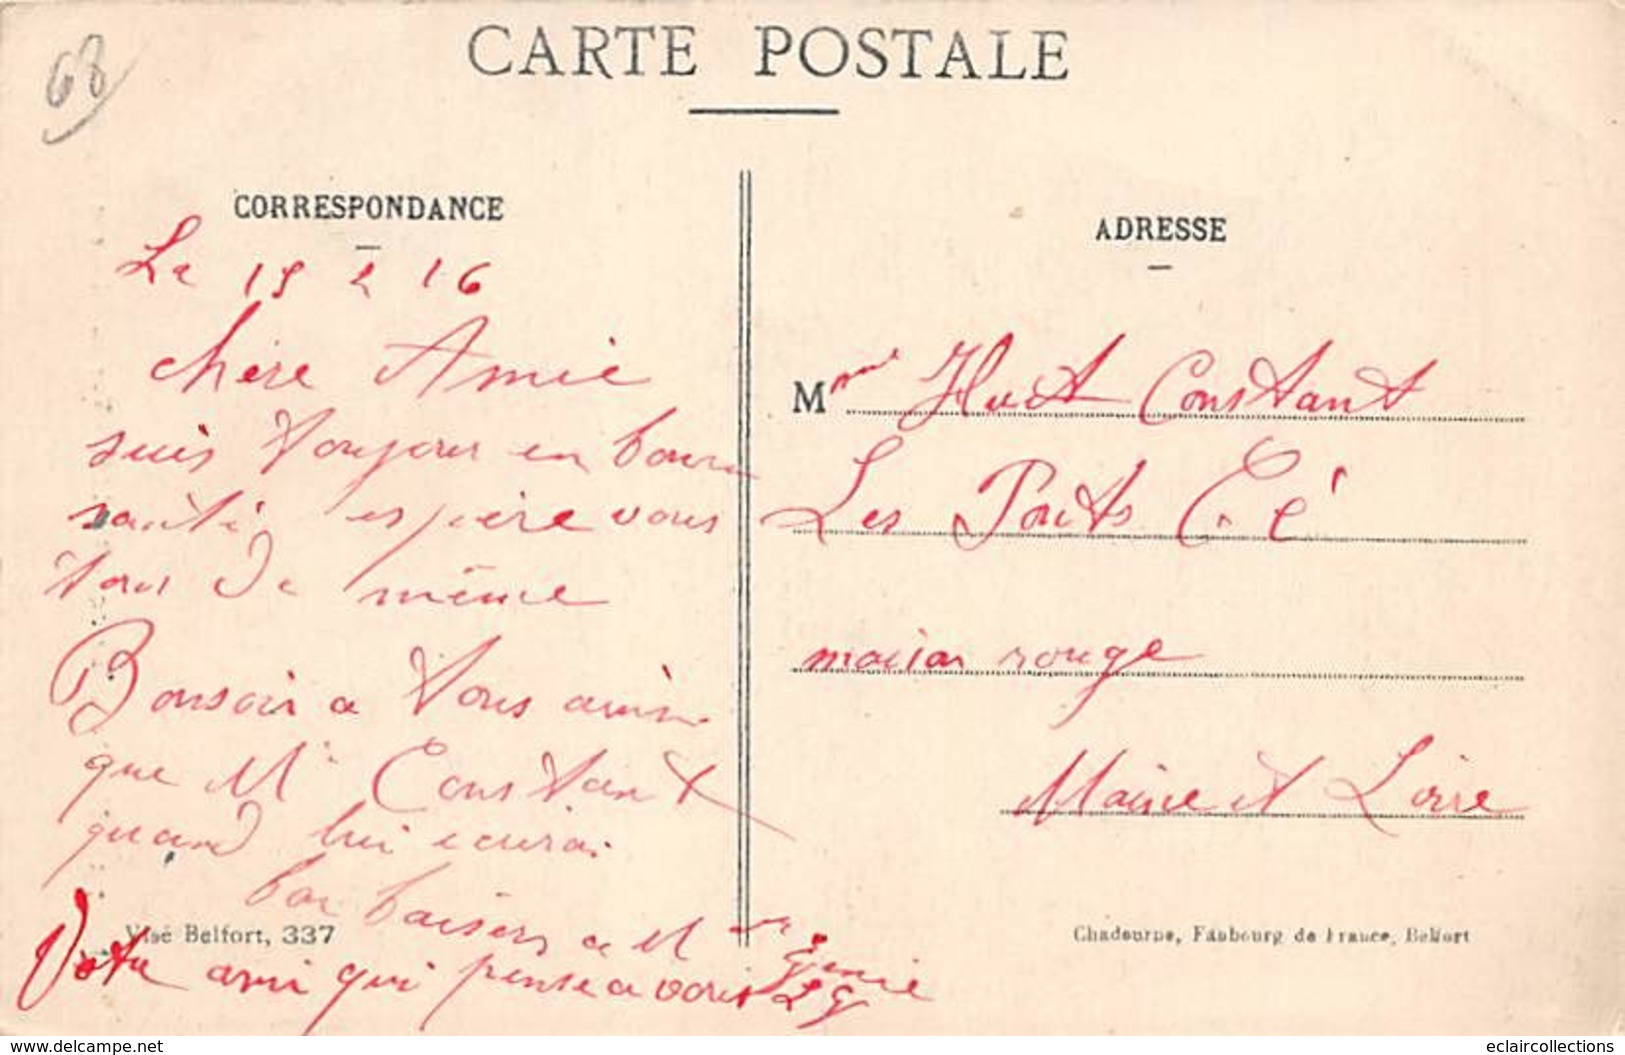 68
CARTE POSTALE
CORRESPONDANCE
Le 15 2 16
chère Amie
suis Toujour en bonne
santé espère vous
tous de même
Bonsoir a Vous ainsi
que Mr Constant
quand lui ecrirai
bon baisers a Mme Eugenie
Votre ami qui pense a vous LG
Visé Belfort, 337
ADRESSE
Mme Huet Constant
Les Ponts C. é
maison rouge
Maine et Loire
Chadourne, Faubourg de France, Belfort
www.delcampe.net
eclaircollections